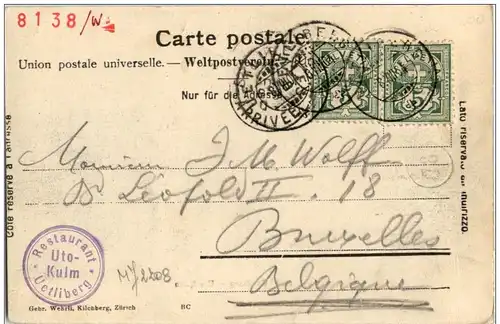 8138/W
Carte postale.
Union postale universelle. — Weltpostverein.
Nur für die Adresse
Côté réservé à l'adresse
Lato riservato all'indirizzo.
Monsieur J M Wolff
Bd Léopold II. 18
Bruxelles
Belgique
Restaurant
Uto-
Kulm
Uetliberg
Gebr. Wehrli, Kilchberg, Zürich